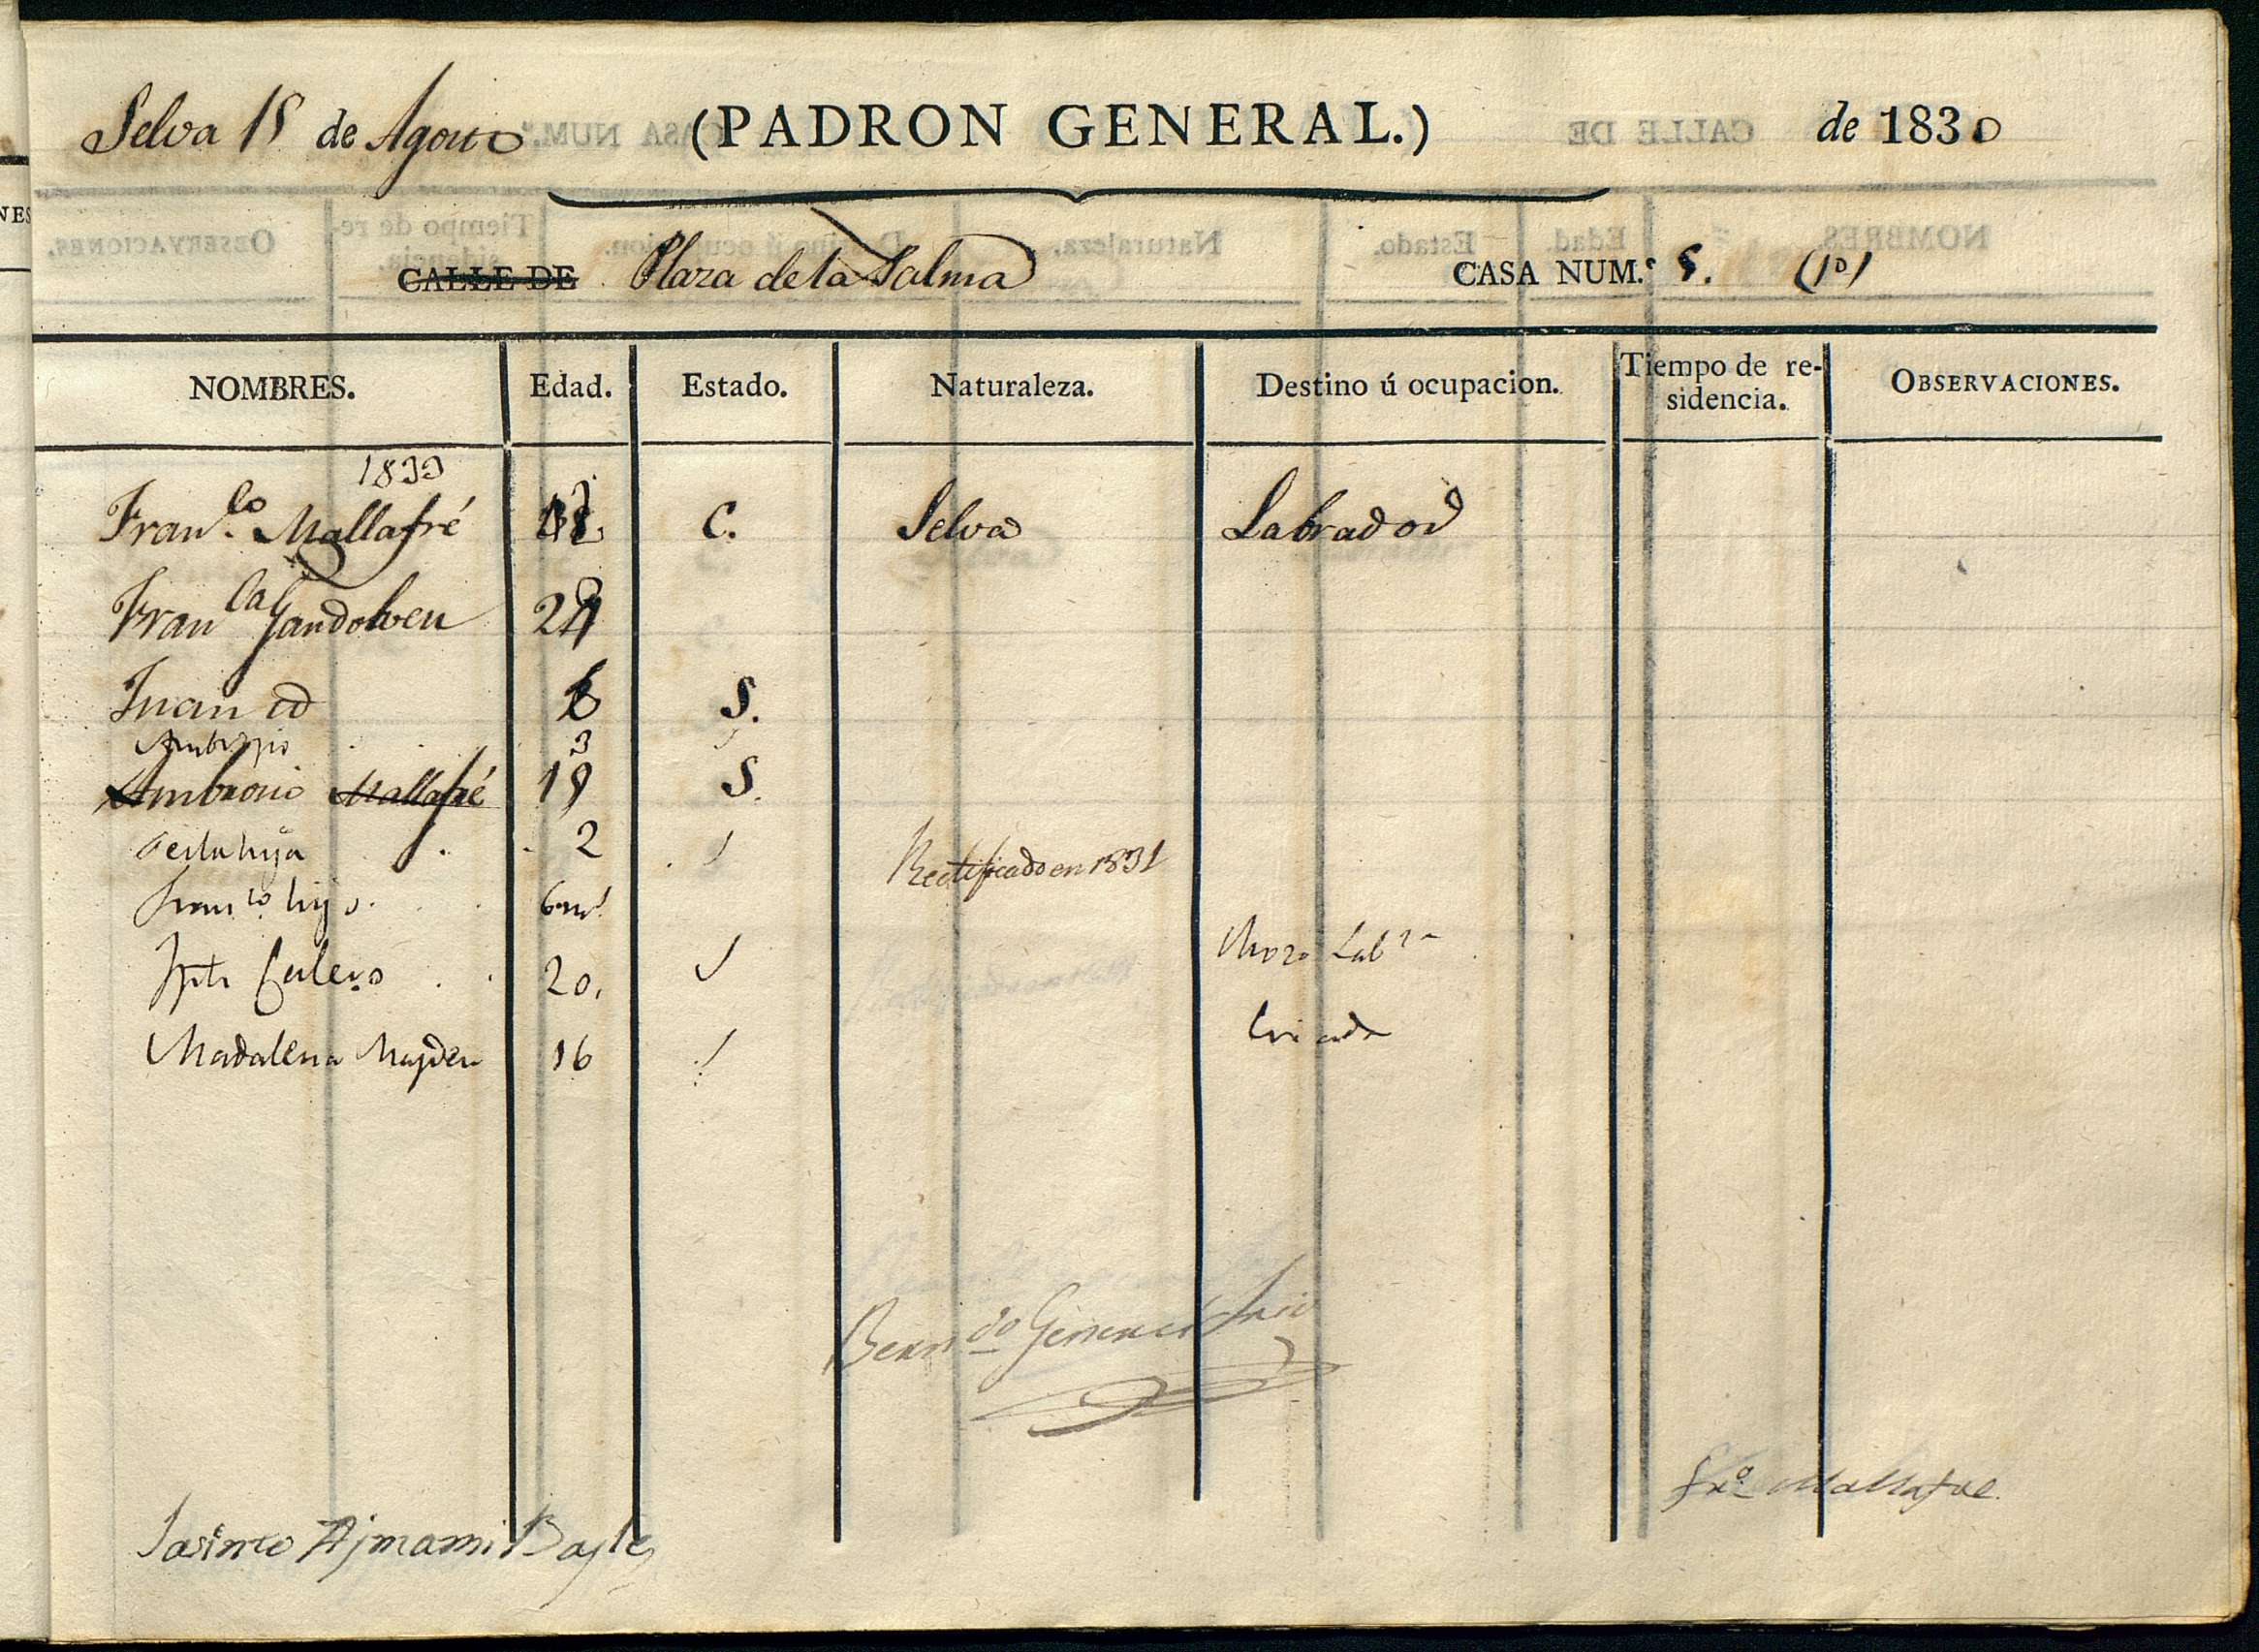 Selva 15 de Agosto (PADRON GENERAL.) de 1830
CALLE DE Plaza de la Palma CASA NUM.º 5. (1º)
NOMBRES. Edad. Estado. Naturaleza. Destino ú ocupacion. Tiempo de re-
sidencia. OBSERVACIONES.
1833
Fran.co Mallafré C. Selva Labrador
Fran ca Gandolveu 24
Juan id S.
3
Ambrosio Mallafré 19 S.
hija 2
Rectificado en 1831
Fran co hijo 6 ms
20. Mozo Lab
Madalena 16 Criada
Bern do
Mallafre
Batlle